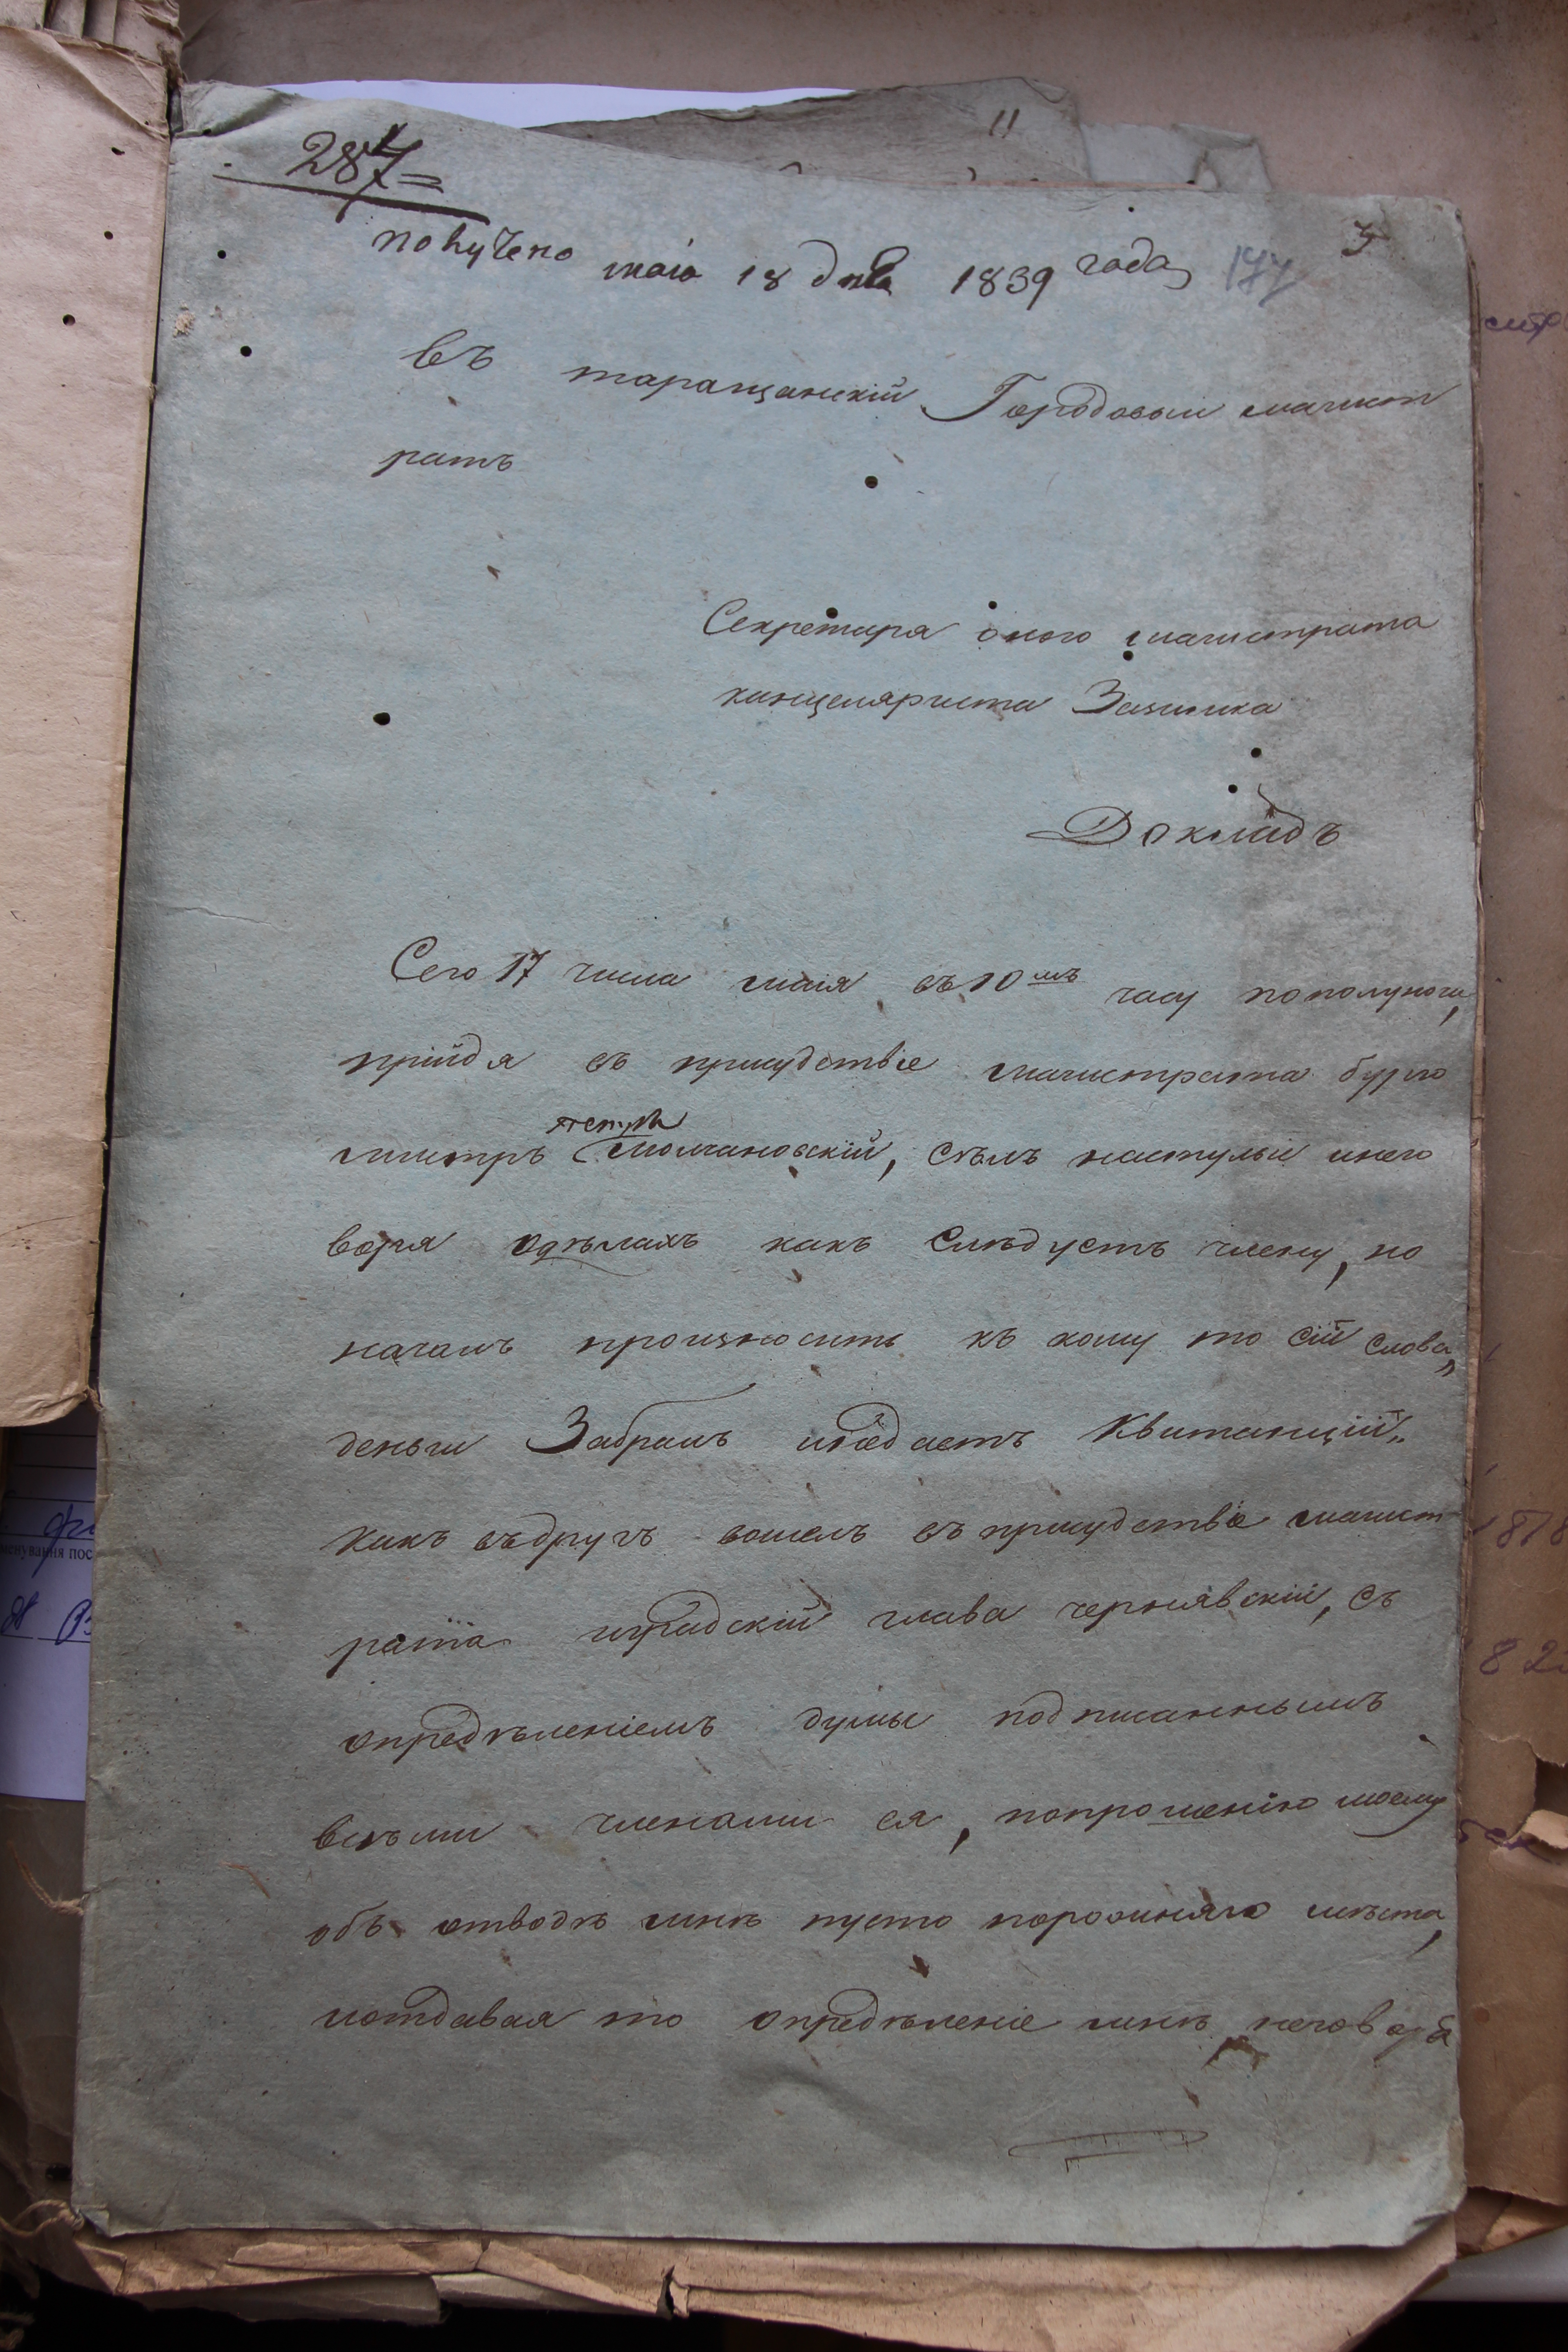 287
получено маія 18 дня 1839 года 177 3
Въ таращанскій Городовый магист
ратъ
Секретаря оного магистрата
канцеляриста
Докладъ
Сего 17 числа маія въ 10мъ часу пополуночи,
прійдя въ присудствіе магистрата бурго
мистръ Молчановскій, селъ настулъ инего
воря одѣлахъ какъ Слѣдуетъ члену, но
началъ произносить къ кому то сій слова„
деньги Забралъ инедаетъ Квитанцій„
какъ въдругъ вошелъ въ присудствіе магист
рата градскій глава чернявскій, съ
опредѣленіемъ думы подписаннымъ
всѣми членами ея, попрошенію моему
объ отводѣ мнѣ пусто порожняго мѣста,
иотдавая то опредѣленіе мнѣ неговоря